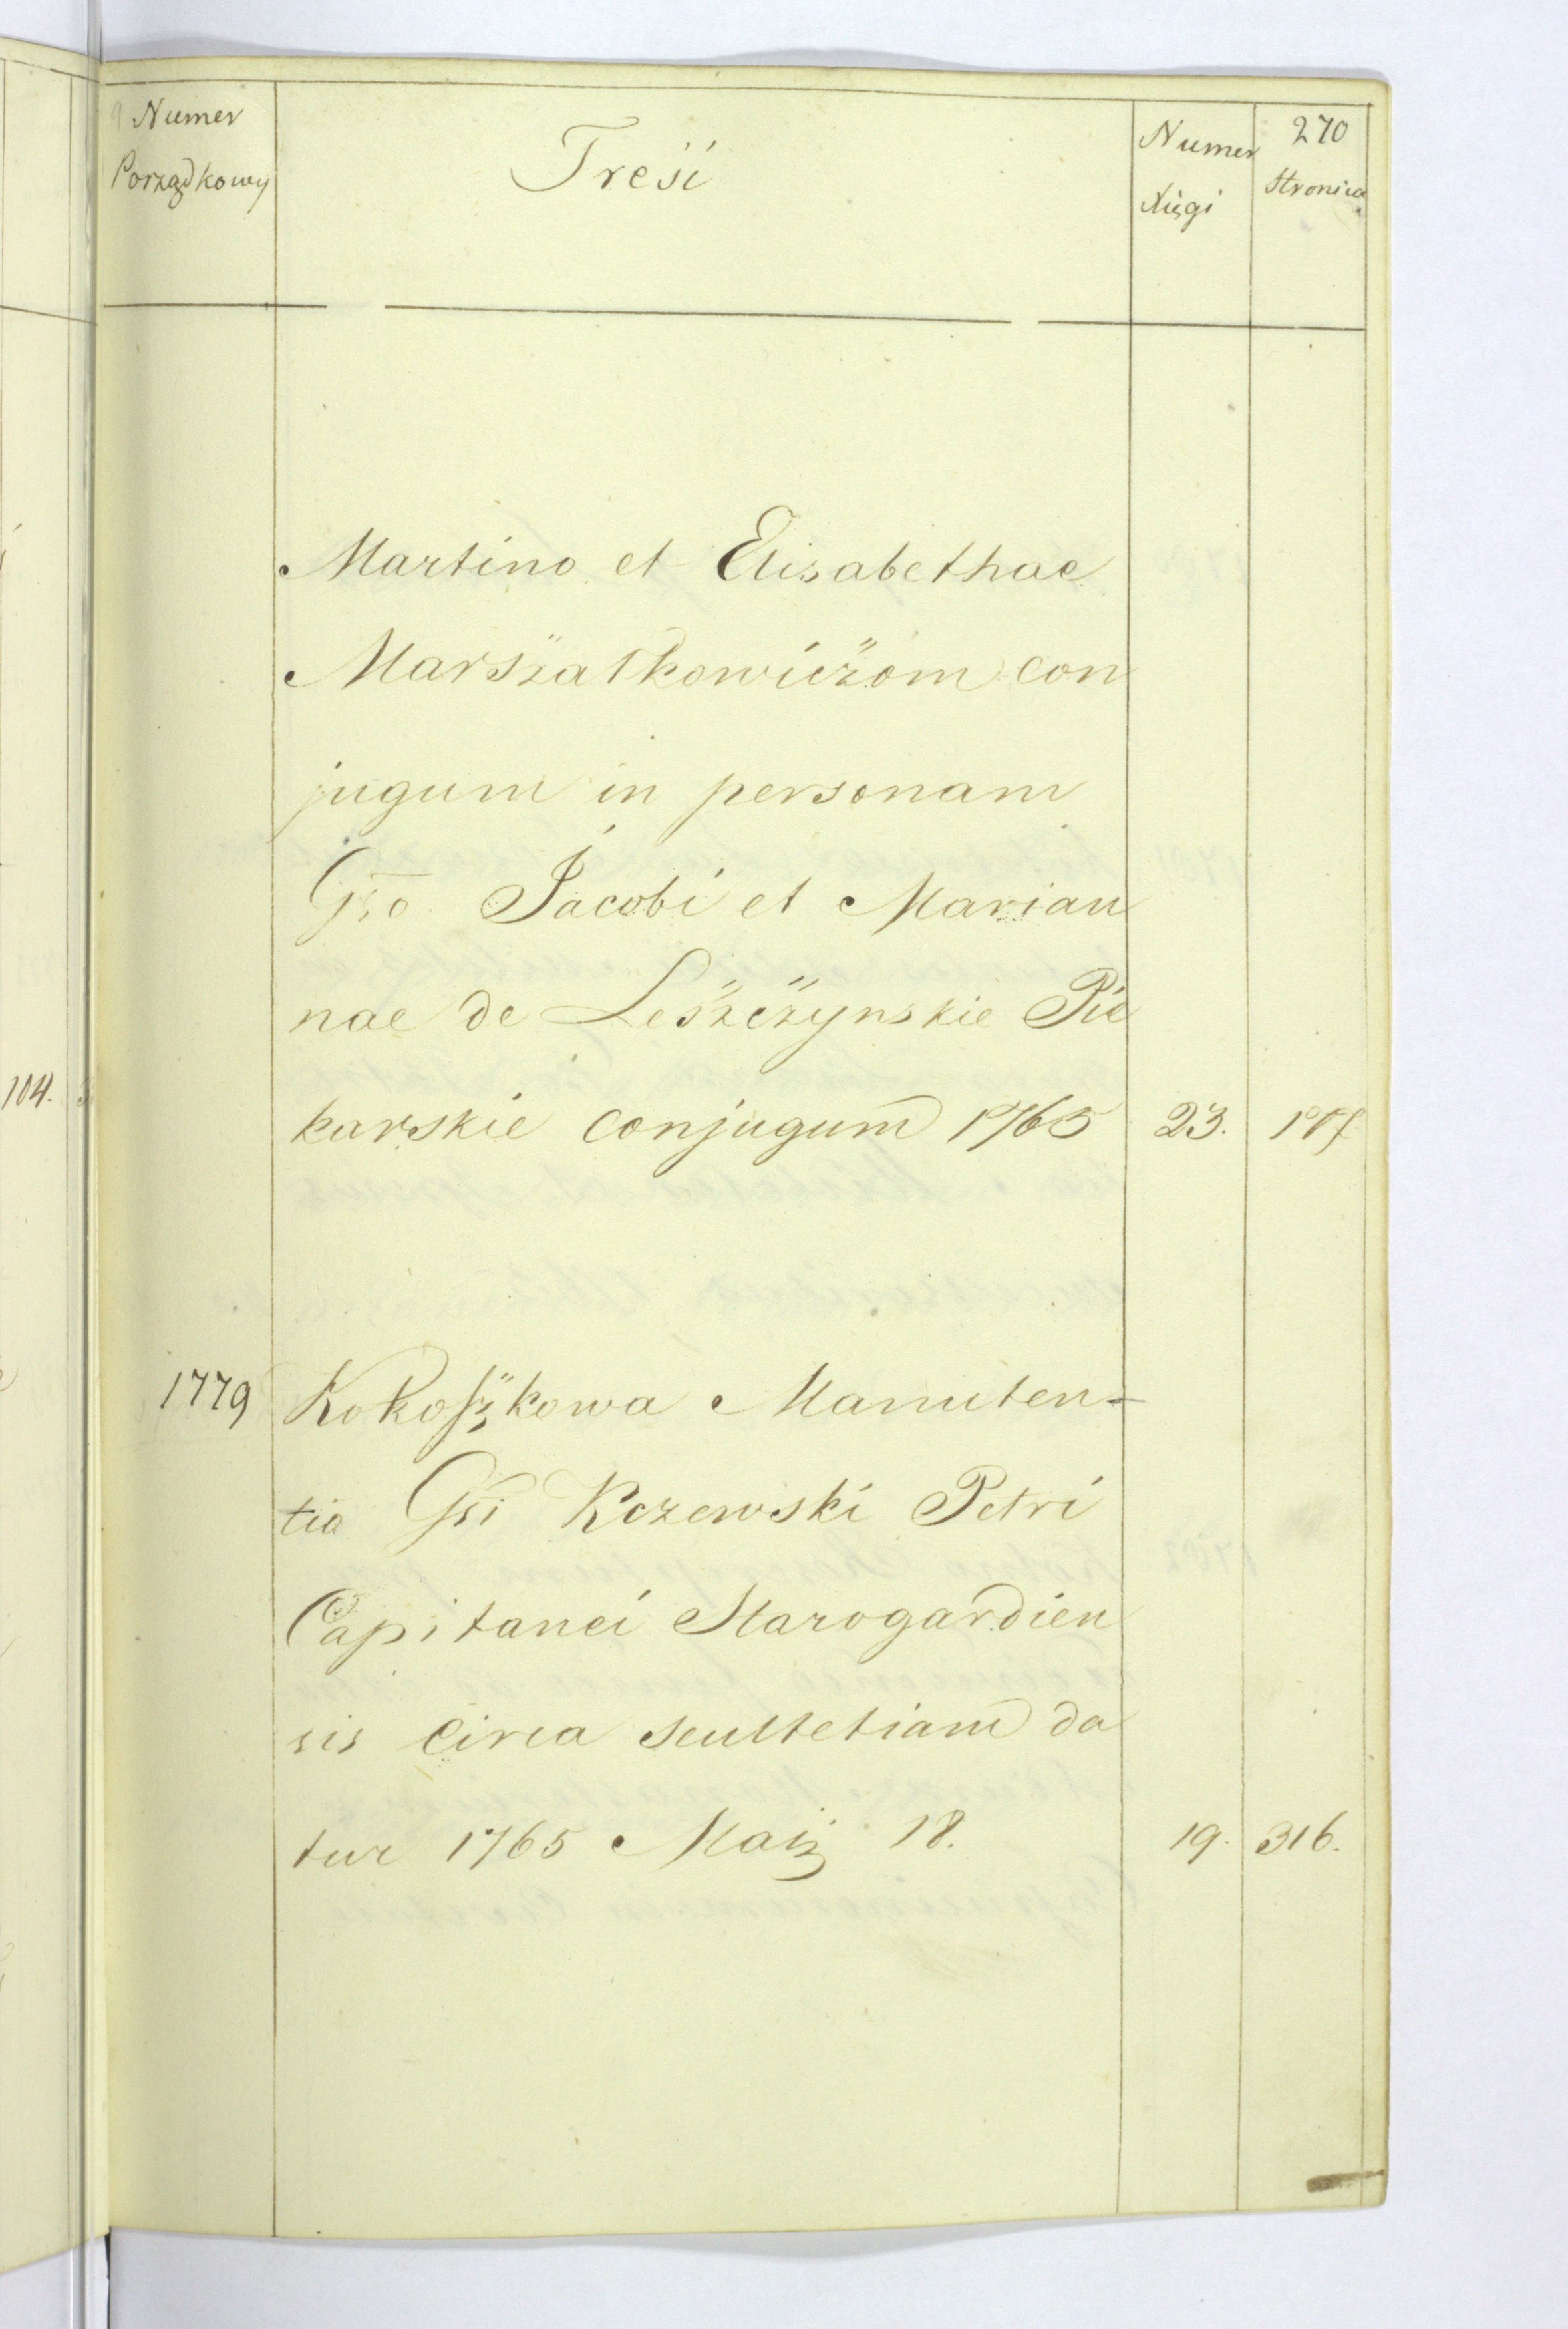 Numer
Porządkowy
Treść
Numer
Xięgi
270
Stronica
Martino et Elisabethae
Marszałkowiczom con
jugum in personam
Gso Jacobi et Marian
nae de Leszczynskie Pie
karskie conjugum 1765 23.
104.
1779 Kokoszkowa Manuten-
tia Gsi Kczewski Petri
Capitanei Starogardien
sis circa scultetiam da
tur 1765 Maij 18. 19. 316.